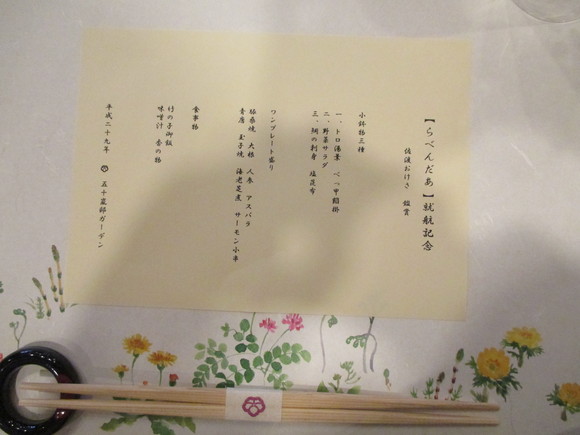 【らべんだあ】就航記念
佐渡おけさ 鑑賞
小鉢物三種
一、トロ湯葉 べっ甲餡掛
二、野菜サラダ
三、鯛の刺身 塩昆布
ワンプレート盛り
豚角焼 大根 人参 アスパラ
青唐 玉子焼 海老芝煮 サーモン小串
食事物
竹の子御飯
味噌汁 香の物
平成二十九年 五十嵐邸ガーデン